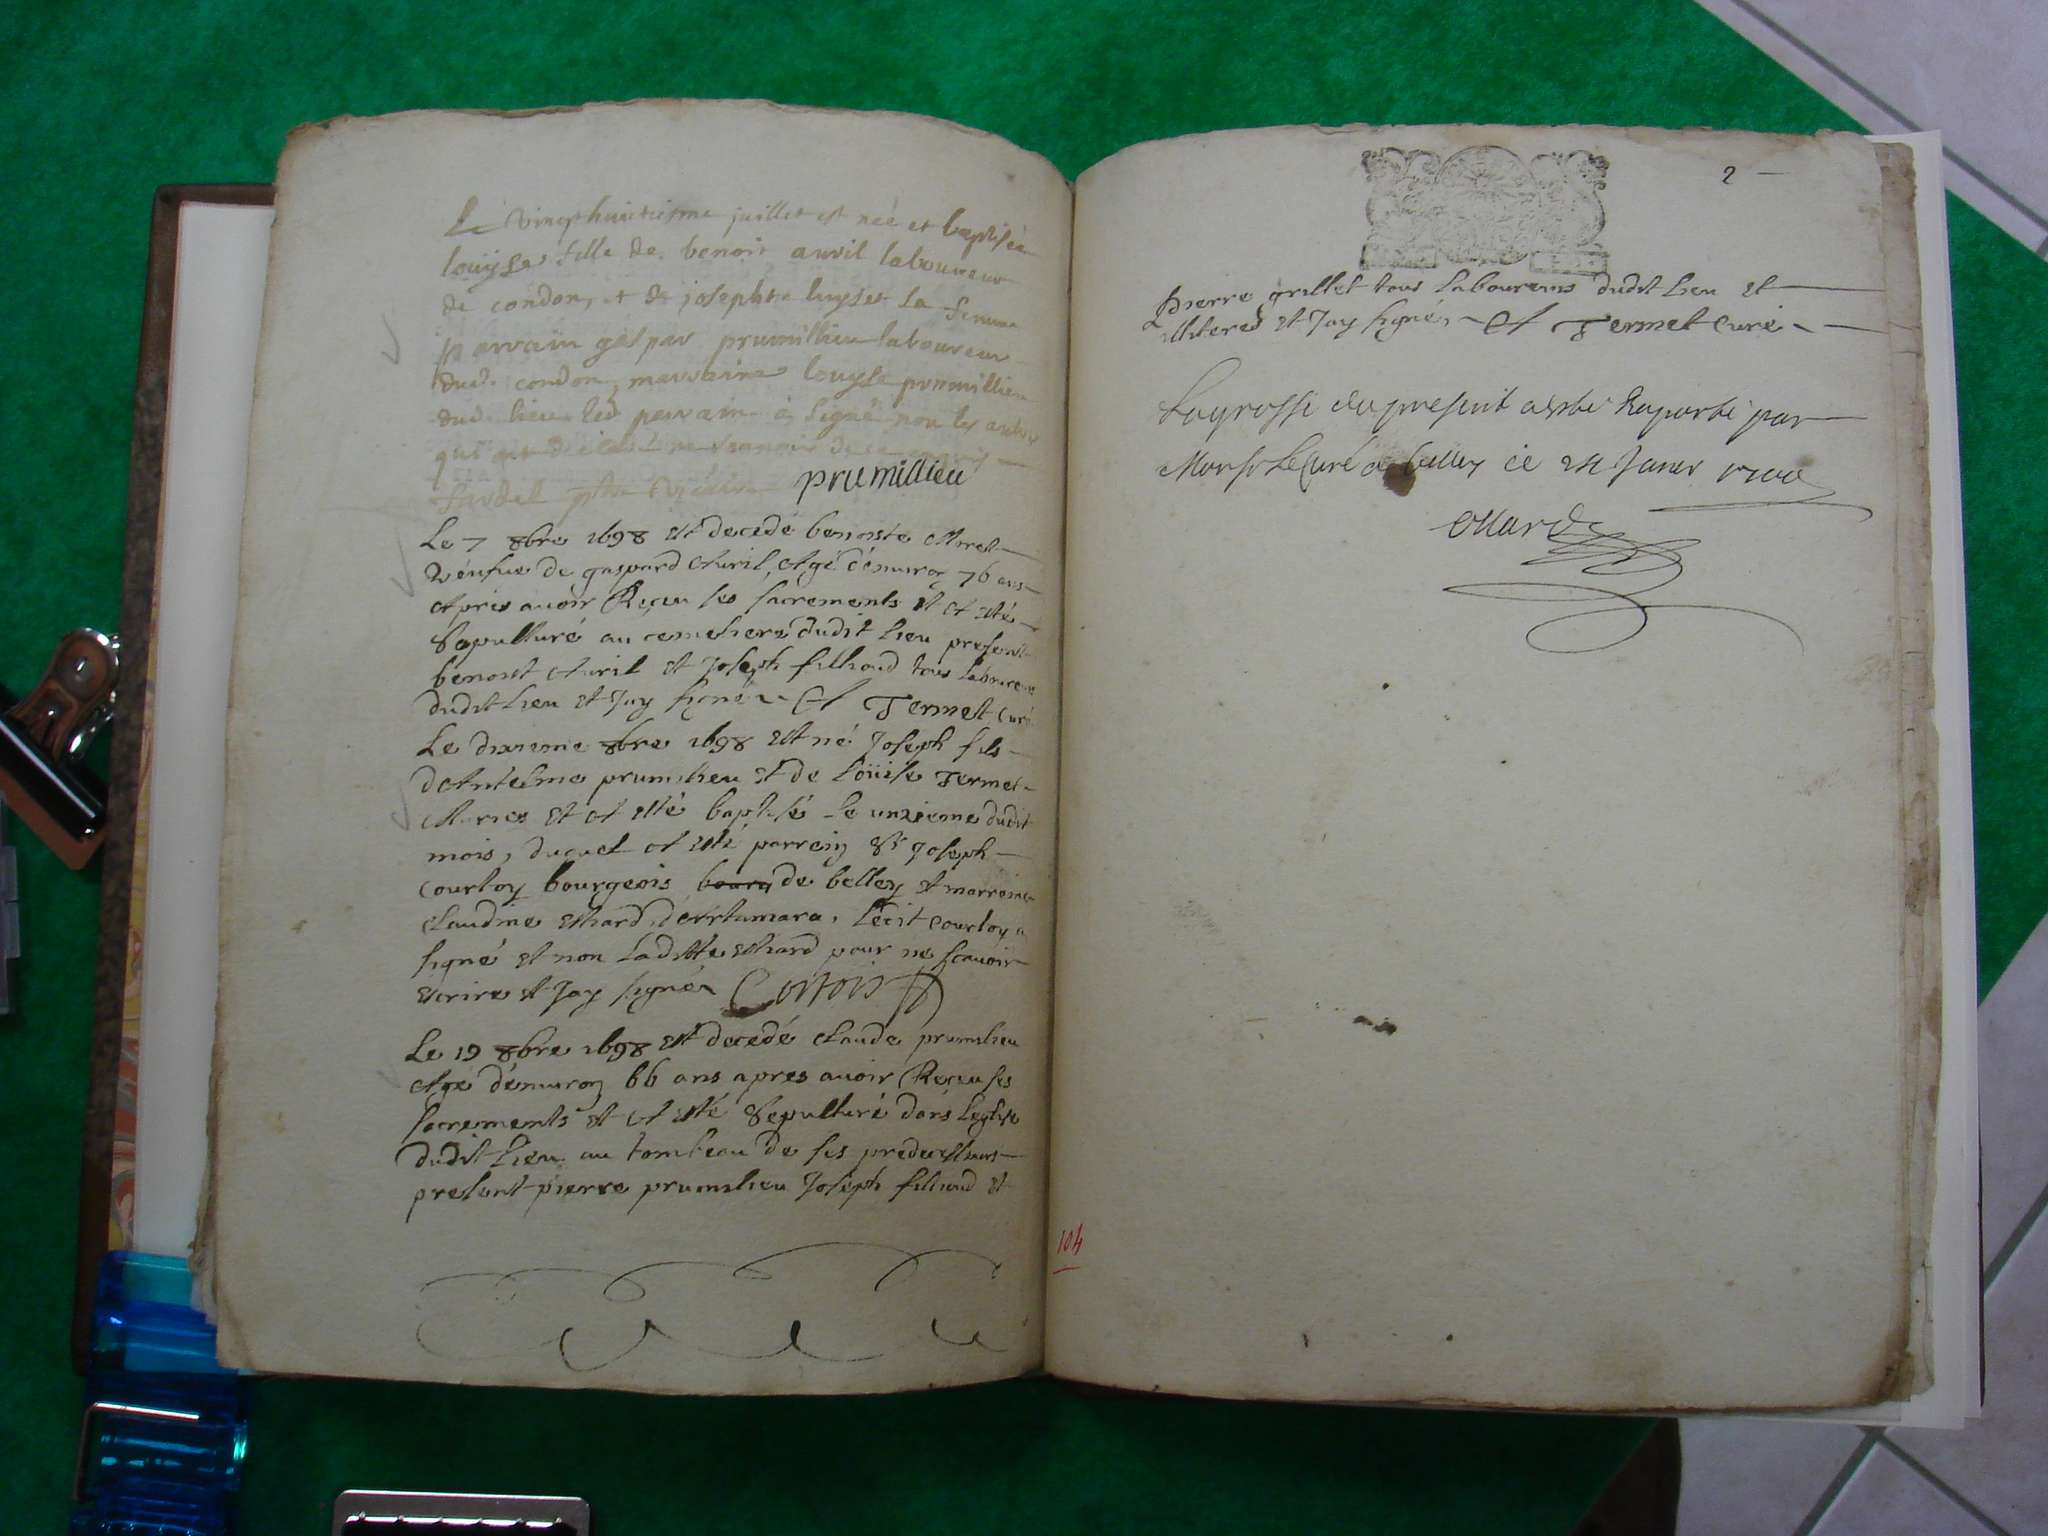 Le vingt huictiesme juillet est neé et baptiséé
louyse fille de benoit avril laboureur
de condon, et de josephte luyset sa femme
parrain gaspar prumillieu laboureur
dud. condon, marraine louyse prumillieu
dud. lieu led parrain à signé non les autres
qui ont declaré ne
prumillieu
Le 7 8bre 1698 est decedé benoiste Moret
vëufve de gaspard Avril, Agé d'énuiron 76 ans
Apres avoir Reçeu ses sacrements et A esté
Sepulturé au cemetiere dudit lieu present
benoist Avril et Joseph filliaud tous laboureurs
dudit lieu et Jay signé Termet Curé
Le dixieme 8bre 1698 est né Joseph fils
d'Antelme prumilieu et de Loüise Termet
Maries et A esté baptisé le unzieme dudit
mois, duquel A esté parrein Sr Joseph
Courtoy bourgeois bourg de belley et marreine
Claudine Ethard d'Artemara, Ledit Courtoy a
signé et non Laditte Ethard pour ne scavoir
escrire et Jay signé Cortois
Le 19 8bre 1698 est decedé Claude prumilieu
Agé d'énuiron 66 ans apres avoir Reçeu ses
sacrements et A esté Sepulturé dans Leglise
dudit lieu au tombeau de ses predecesseurs
present pierre prumilieu Joseph filliaud et
2
Pierre grillet tous laboureurs dudit lieu et
illiteres et Jay signé, Termet Curé
La grosse du present a esté Raporté par
Monsr Le Curé a belley ce 21 Janer 1700
104